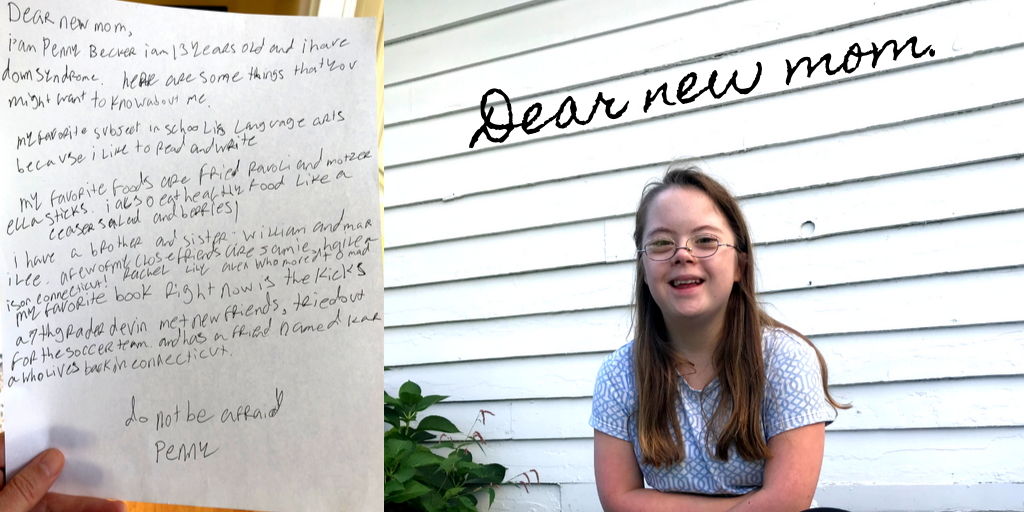 Dear new mom,
i am Penny Becker i am 13 years old and i have
down syndrome. here are some things that you
might want to know about me.
my favorite subject in school is Language arts
because i like to read and write
my favorite foods are fried ravoli and motzer
ella sticks. i also eat healthy food like a
ceaser salad and berries!
i have a brother and sister William and mar
ilee. a few of my close friends are Jamie, hailey
Rachel
my favorite book right now is the kicks
a 7th grader devin met new friends, tried out
for the soccer team. and has a fried named kar
a who lives back in connecticut.
do not be afraid
Penny
Dear new mom.